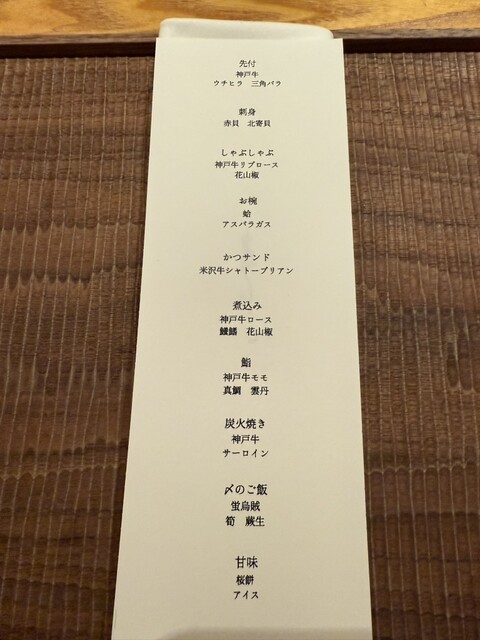 先付
神戸牛
ウチヒラ　三角バラ
刺身
赤貝　北寄貝
しゃぶしゃぶ
神戸牛リブロース
花山椒
お椀
蛤
アスパラガス
かつサンド
米沢牛シャトーブリアン
煮込み
神戸牛ロース
花山椒
鮨
神戸牛モモ
真鯛　雲丹
炭火焼き
神戸牛
サーロイン
〆のご飯
蛍烏賊
筍　蕨生
甘味
桜餅
アイス